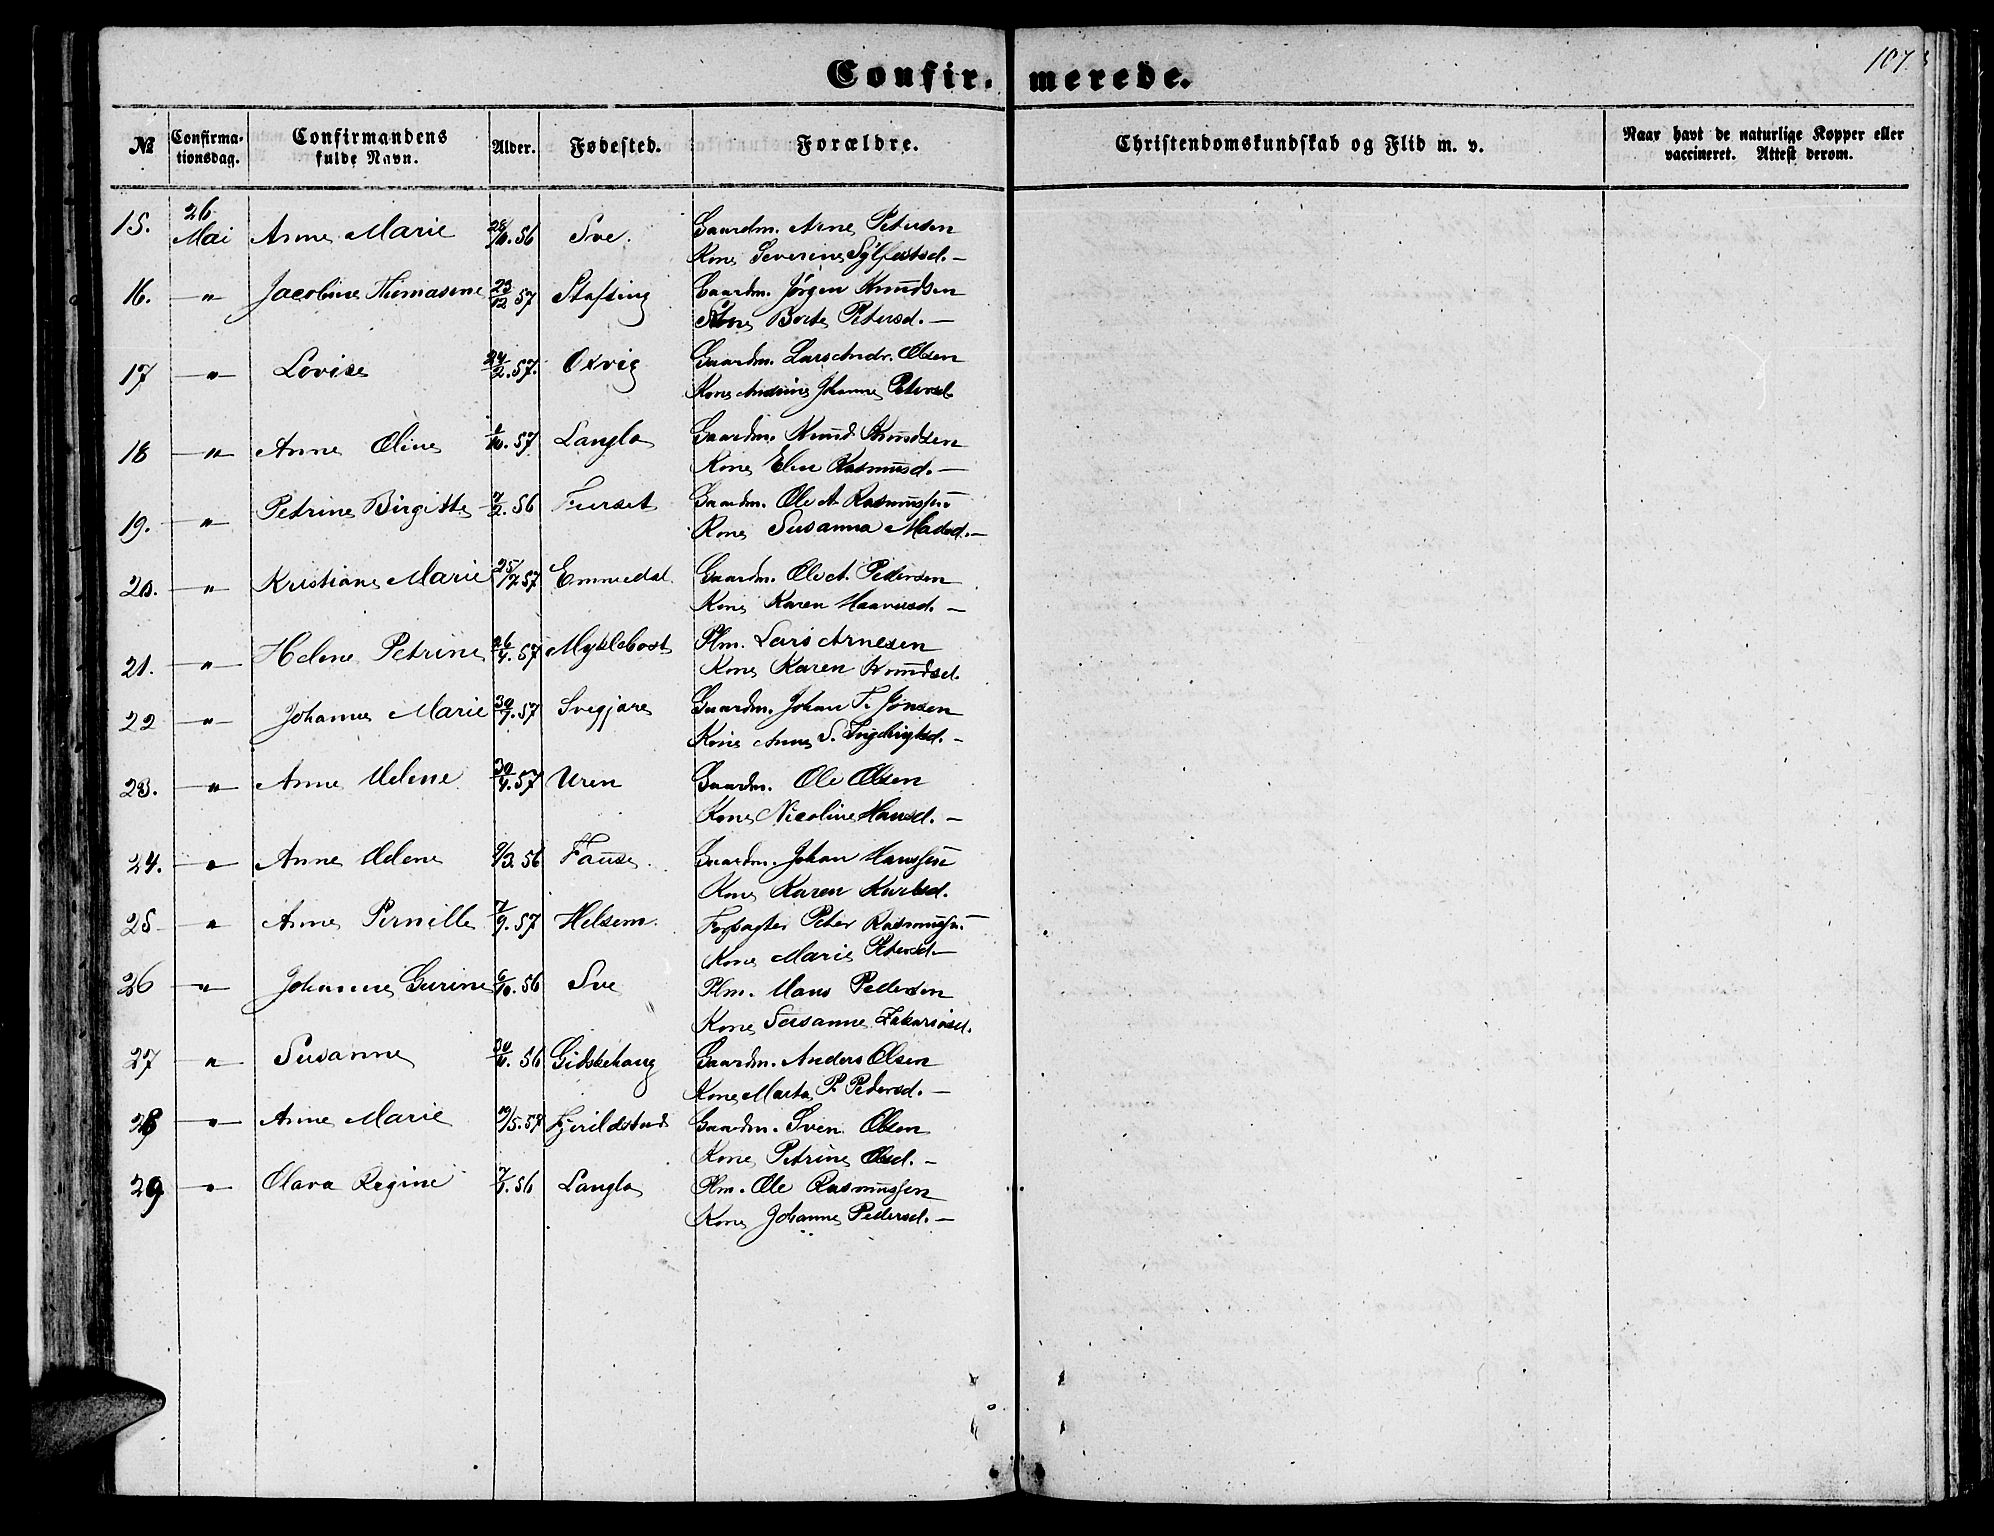 Confir- merede.
107.
№ Confirma-tionsdag. Confirmandens fulde Navn. Alder. Fødested. Forældre. Christendomskundskab og Flid m. v. Naar havt de naturlige Kopper eller vaccineret. Attest derom.
15. 26 Mai Anne Marie 28/10.56 Sve. Gaardm. Arne Petersen
Kone Severine Sylfestsd. —
16. — " — Jacobine Thomasine 23/12 57 Stafsing Gaardm. Jørgen Knudsen
Kone Borte Petersd. —
17 — " — Lovise 24/2.57. Oxvig Gaardm. Lars Andr. Olsen
Kone Andrine Johanne Petersd
18 — " — Anne Oline 1/10.57 Langlo Gaardm. Knud Knudsen
Kone Elen Rasmusd. —
19. — " Petrine Birgitte 7/2.56 Furset Gaardm. Ole A. Rasmussen
Kone Susanna Madsd. —
20. — " — Kristiane Marie 25/12 57 Emmedal. Gaardm. Ole A. Pedersen
Kone Karen Haaversd. —
21. — " — Helene Petrine 26/4.57 Myklebost Plm. Lars Arnesen
Kone Karen Knudsd.
22 — " — Johanne Marie 30/7.57 Svegjare Gaardm. Johan T. Jonsen
Kone Anne S. Ingebrigtsd. —
23. — " — Anne Helene 30/4.57 Uren Gaardm. Ole Olsen
Kone Nicoline Hansd. —
24. — " — Anne Helene 9/3.56 Fause. Gaardm. Johan Hanssen
Kone Karen Karlsd.
25 — " — Anne Pernille 7/9.57 Helsem. Forpagter Peter Rasmussen.
Kone Marie Petersd —
26 — " — Johanne Gurine 6/10.56 Sve Plm. Hans Pedersen
Kone Susanne Zakariasd.
27 — " — Susanne 30/6.56 Gidskehaug Gaardm. Anders Olsen
Kone Marta P. Pedersd. —
28 — " — Anne Marie 19/5.57 Fjerildstad Gaardm. Sven Olsen
Kone Petrine Olsd. —
29 — " — Olava Regine 7/6.56 Langlo Plm. Ole Rasmussen
Kone Johanne Pedersd. —